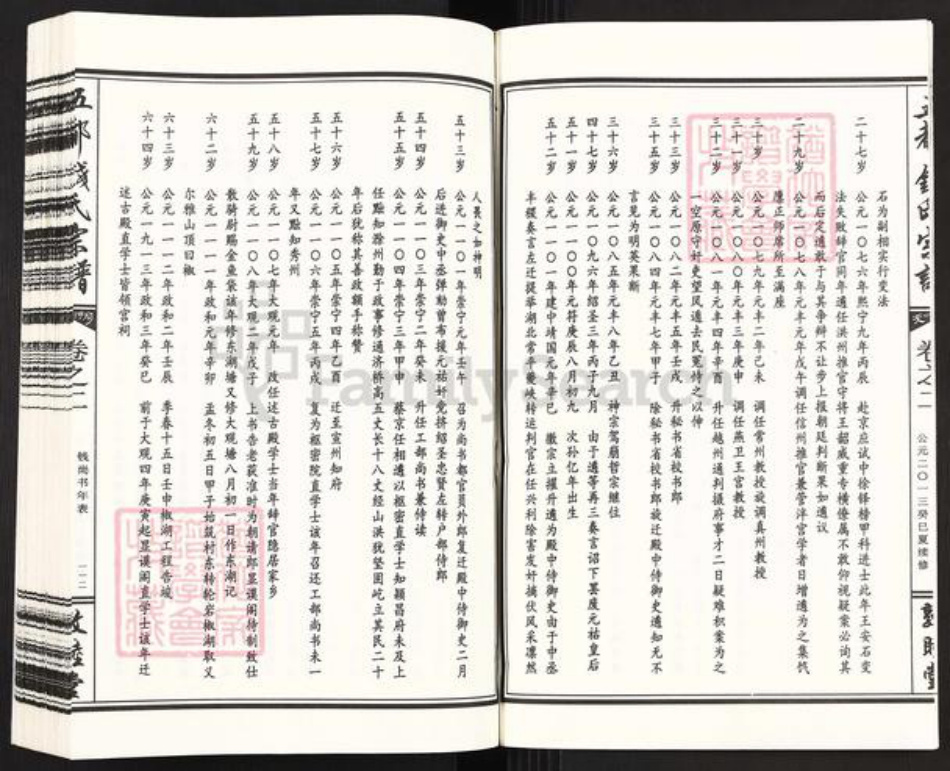 石为副相实行变法
二十七岁 公元一〇七六年熙宁九年丙辰 赴京应试中徐铎榜甲科进士此年王安石变
法失败辞官同年遹任洪州推官守将王韶威重专横僚属不敢仰视疑案必询其
而后定遹敢于与其争辩不让步上报朝廷判断果如遹议
二十九岁 公元一〇七八年元丰元年戊午调任信州推官兼管泮宫学者日增遹为之集饩
廪正师席所至满座
三十岁 公元一〇七九年元丰二年己未 调任常州教授旋调真州教授
三十一岁 公元一〇八〇年元丰三年庚申 调任燕卫王宫教授
三十二岁 公元一〇八一年元丰四年辛酉 升任越州通判摄府事才二日疑难积案为之
一空原守奸吏望风遁去民冤恃之以伸
三十三岁 公元一〇八二年元丰五年壬戌 升秘书省校书郎
三十五岁 公元一〇八四年元丰七年甲子 除秘书省校书郎旋迁殿中侍御史遹知无不
言见为明英果断
三十六岁 公元一〇八五年元丰八年乙丑 神宗驾崩哲宗继位
四十七岁 公元一〇九六年绍圣三年丙子九月 由于遹等再三奏言诏下罢废元祐皇后
五十一岁 公元一一〇〇年元符庚辰八月初九 次孙亿年出生
五十二岁 公元一一〇一年建中靖国元年辛巳 徽宗主擢升遹为殿中侍御史由于中丞
丰稷奏言左迁提举湖北常平夔峡转运判官在任兴利除害发奸摘伏风采凛然
人畏之如神明
五十三岁 公元一一〇一年崇宁元年壬午 召为尚书都官员外郎复迁殿中侍御史二月
后进御史中丞弹劾曾布援元祐奸党挤绍圣忠贤左转户部侍郎
五十四岁 公元一一〇三年崇宁二年癸未 升任工部尚书兼侍读
五十五岁 公元一一〇四年崇宁三年甲申 蔡京任相遹以枢密直学士知颍昌府未及上
任黜知滁州勤于政事修通济桥高五丈长十八丈经山洪犹坚固屹立其民二十
年后犹称其善政额手称赞
五十六岁 公元一一〇五年崇宁四年乙酉 迁至宣州知府
五十七岁 公元一一〇六年崇宁五年丙戌 复为枢密院直学士该年召还工部尚书未一
年又黜知秀州
五十八岁 公元一一〇七年大观元年 改任述古殿学士当年辞官隐居家乡
五十九岁 公元一一〇八年大观二年戊子 上书告老获准时为朝请郎显谟阁待制致仕
散骑尉赐金鱼袋该年修东湖塘又修大观塘八月初一日作东湖记
六十二岁 公元一一一一年政和元年辛卯 孟冬初五日甲子始筑村东转轮岩椒湖取义
尔雅山顶曰椒
六十三岁 公元一一一二年政和二年壬辰 季春十五日壬申椒湖工程告竣
六十四岁 公元一九一三年政和三年癸巳 前于大观四年庚寅起显谟阁直学士该年迁
述古殿直学士皆领宫祠
五部钱氏宗谱
卷之二
钱尚书年表
敦睦堂
卷之二
公元二〇一三癸巳夏续修
敦睦堂
FamilySearch